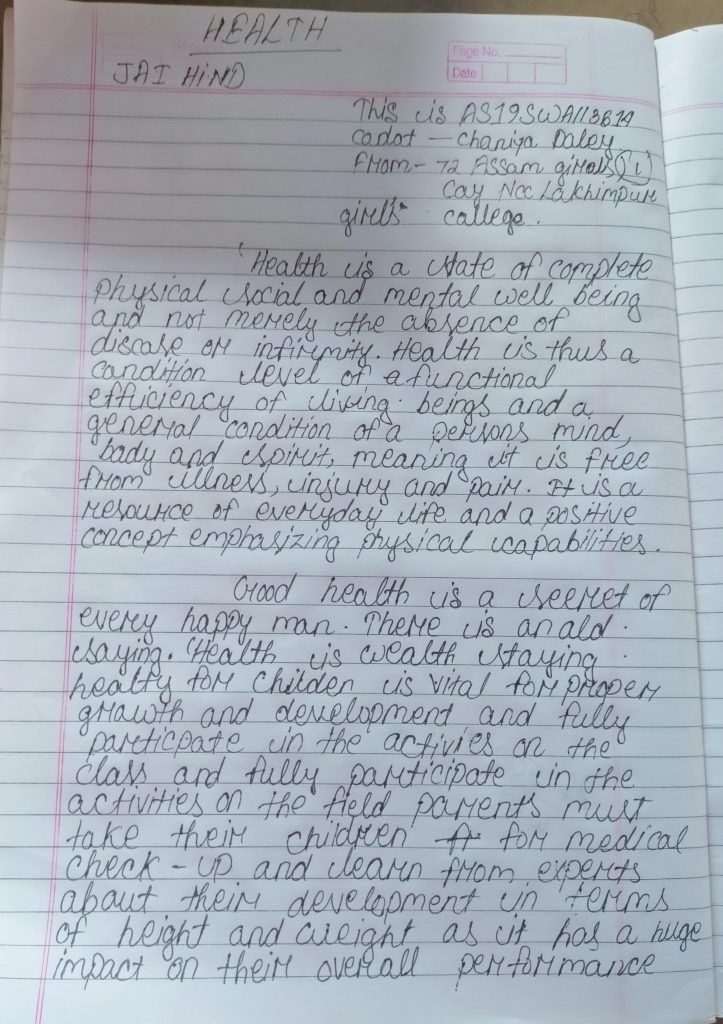 HEALTH
Page No.
Date
JAI HIND
This is AS19SWA113614
Cadot - Chaniya Daley
From - 72 Assam girols (i)
Coy Ncc Lakhimpur
girl's college.
'Health is a state of complete
physical social and mental well being
and not merely the absence of
discase or infirmity. Health is thus a
condition level of a functional
efficiency of living. beings and a
general condition of a persons mind,
body and spirit, meaning it is free
from illness, injury and pair. It is a
resource of everyday life and a positive
concept emphasizing physical capabilities.
Good health is a seeret of
every happy man. There is an ald.
saying. 'Health is wealth staying
healty for childen is vital for proper
growth and development and fully
particpate in the activies on the
class and fully participate in the
activities on the field parents must
take their children for medical
check-up and learn from experts
about their development in terms
of height and weight as it has a huge
impact on their overall performance